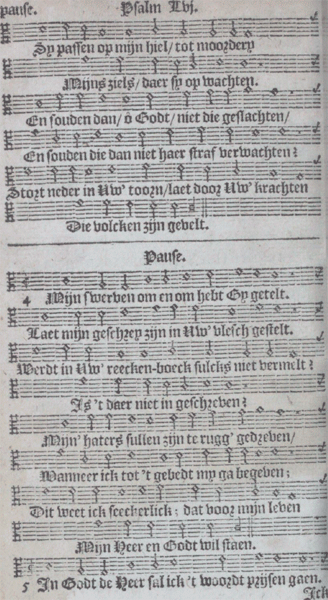 pause. Psalm Lvj.
Sy passen op mijn hiel / tot moordery
Mijns ziels / daer sy op wachten.
En souden dan / ô Godt / niet die geslachten /
En souden die dan niet haer straf verwachten?
Stort neder in Uw' toorn / laet door Uw' krachten
Die volcken zijn gevelt.
Pause.
4 Mijn swerven om en om hebt Gy getelt.
Laet mijn geschrey zijn in Uw' vlesch gestelt.
Werdt in Uw' reecken-boeck sulcks niet vermelt?
Is 't daer niet in geschreven?
Mijn' haters sullen zijn te rugg' gedreven /
Wanneer ick tot 't gebedt my ga begeven;
Dit weet ick seeckerlick: dat voor mijn leven
Mijn Heer en Godt wil staen.
5 In Godt de Heer sal ick 't woordt prijsen gaen.
Ick